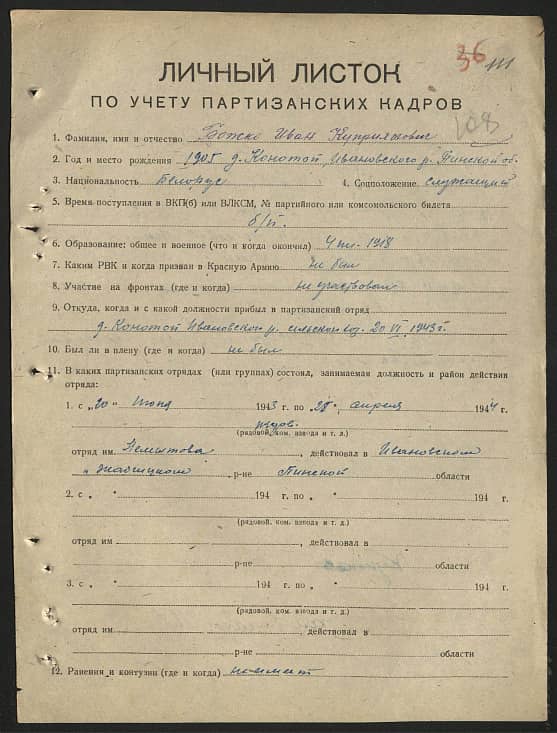 36
108
ЛИЧНЫЙ ЛИСТОК
ПО УЧЕТУ ПАРТИЗАНСКИХ КАДРОВ
1. Фамилия, имя и отчество Божко Иван Куприянович
2. Год и место рождения 1905 д. Конотоп, Ивановского р. Пинской об.
3. Национальность Белорус 4. Соцположение служащий
5. Время поступления в ВКП(б) или ВЛКСМ, № партийного или комсомольского билета
б/п.
6. Образование: общее и военное (что и когда окончил) 4 кл. 1918
7. Каким РВК и когда призван в Красную Армию не был
8. Участие на фронтах (где и когда) не участвовал
9. Откуда, когда и с какой должности прибыл в партизанский отряд
д. Конотоп Ивановского р. 20 VI 1943 г.
10. Был ли в плену (где и когда) не был
11. В каких партизанских отрядах (или группах) состоял, занимаемая должность и район действия
отряда:
1. с „20" июня 1943 г. по „ апреля 1944 г.
рядов.
(рядовой, ком. взвода и т. д.)
отряд им. Немытова, действовал в Ивановском
и Жабицком р-не Пинской области
2. с „ " 194 г. по „ " 194 г.
(рядовой, ком. взвода и т. д.)
отряд им. , действовал в
р-не области
3. с „ " 194 г. по „ " 194 г.
(рядовой, ком. взвода и т. д.)
отряд им. , действовал в
р-не области
12. Ранения и контузии (где и когда) не имеет